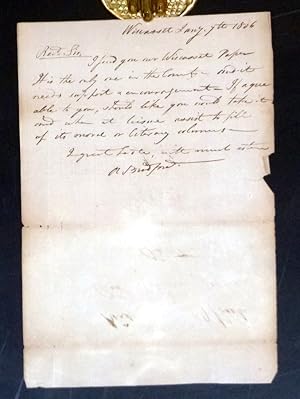 Wiscasset Jany. 9th 1806
Revd. Sir
I send you our Wiscasset Paper
It is the only one in the County and it
needs support & encouragement. If agree
able to you, should like you would take it
and when at leisure assist to fill
of its moral or literary columns.
In great haste, with much esteem
A. Bradford